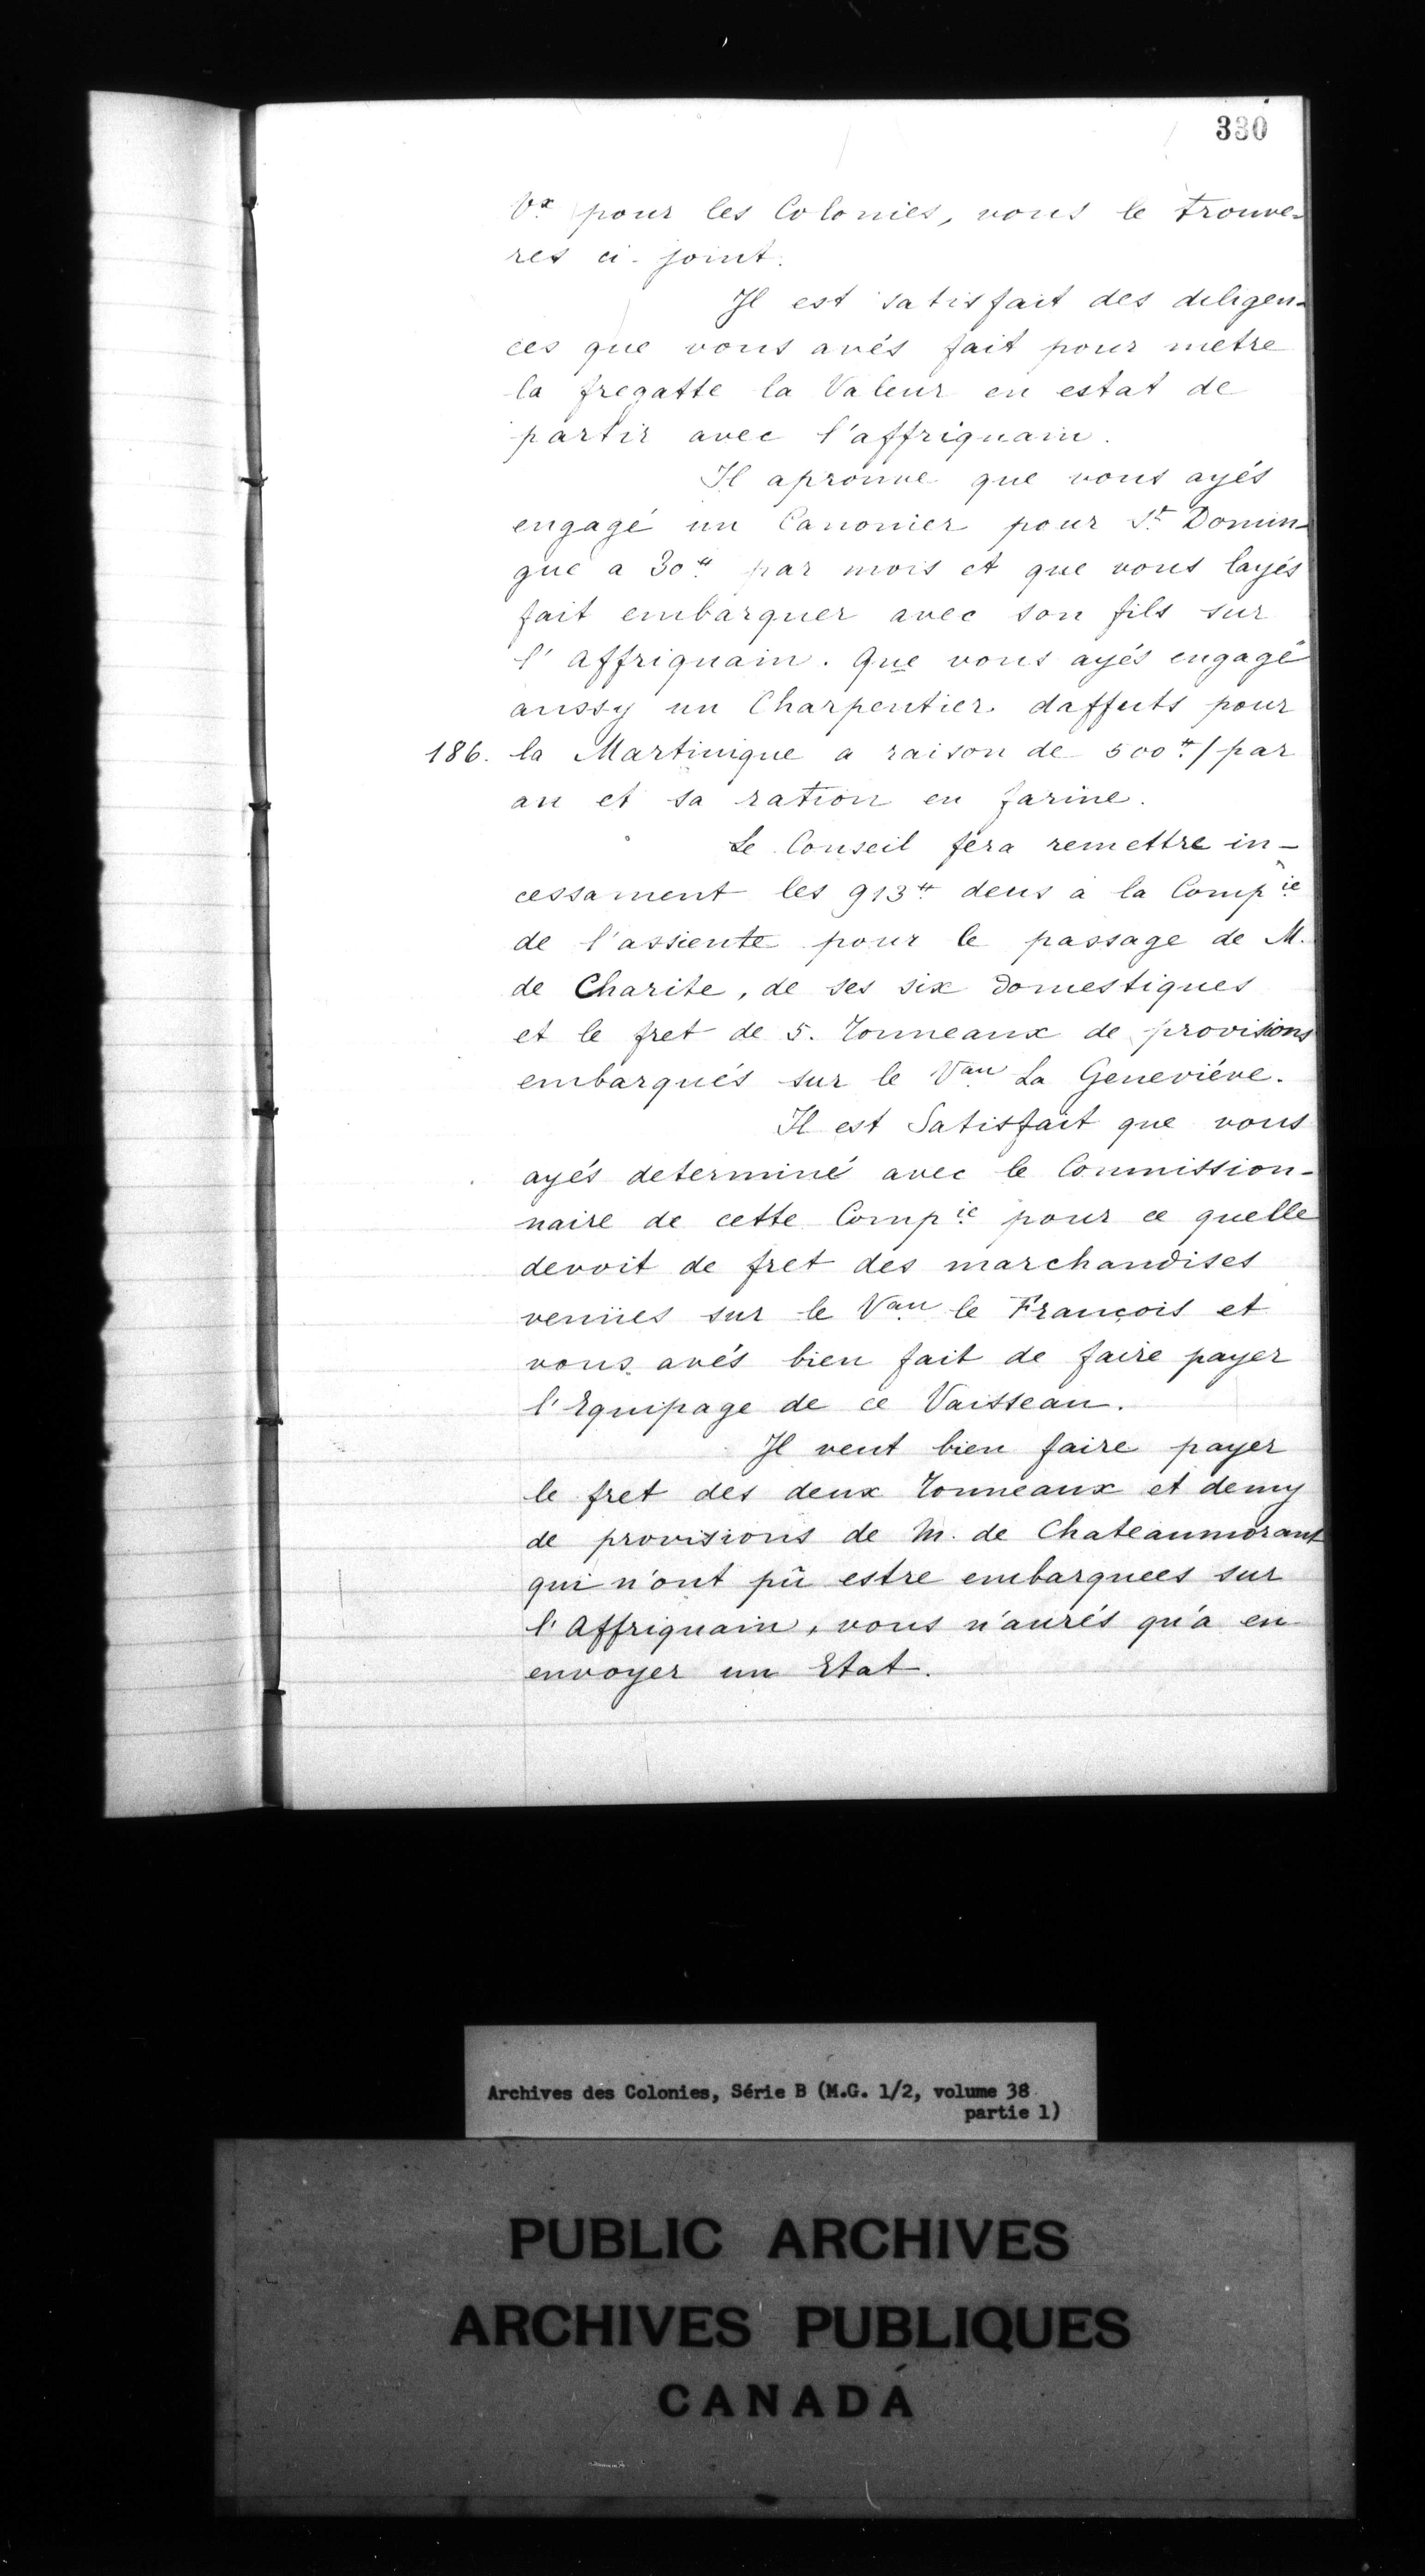 330
Vx pour les Colonies, vous le trouve-
res ci-joint.
Il est satisfait des diligen-
ces que vous avés fait pour metre
la fregatte la Valeur en estat de
partir avec l'affriquain.
Il aprouve que vous ayés
engagé un Canonier pour St Domin-
gue a 30₶ par mois et que vous layés
fait embarquer avec son fils sur
l'Affriquain. Que vous ayés engagé
aussy un Charpentier daffuts pour
186. la Martinique a raison de 500₶/par
an et sa ration en farine.
Le Conseil fera remettre in-
cessament les 913₶ deus à la Compie
de l'assiente pour le passage de M.
de Charite, de ses six domestiques
et le fret de 5. Tonneaux de provisions
embarqués sur le Vau La Geneviéve.
Il est Satisfait que vous
ayés determiné avec le Commission-
naire de cette Compie pour ce quelle
devoit de fret des marchandises
venües sur le Vau le François et
vous avés bien fait de faire payer
l'Equipage de ce Vaisseau.
Il veut bien faire payer
le fret des deux Tonneaux et demy
de provisions de M. de Chateaumorant
qui n'ont pû estre embarquees sur
l'Affriquain, vous n'aurés qu'a en
envoyer un Etat.
Archives des Colonies, Série B (M.G. 1/2, volume 38
partie 1)
PUBLIC ARCHIVES
ARCHIVES PUBLIQUES
CANADA